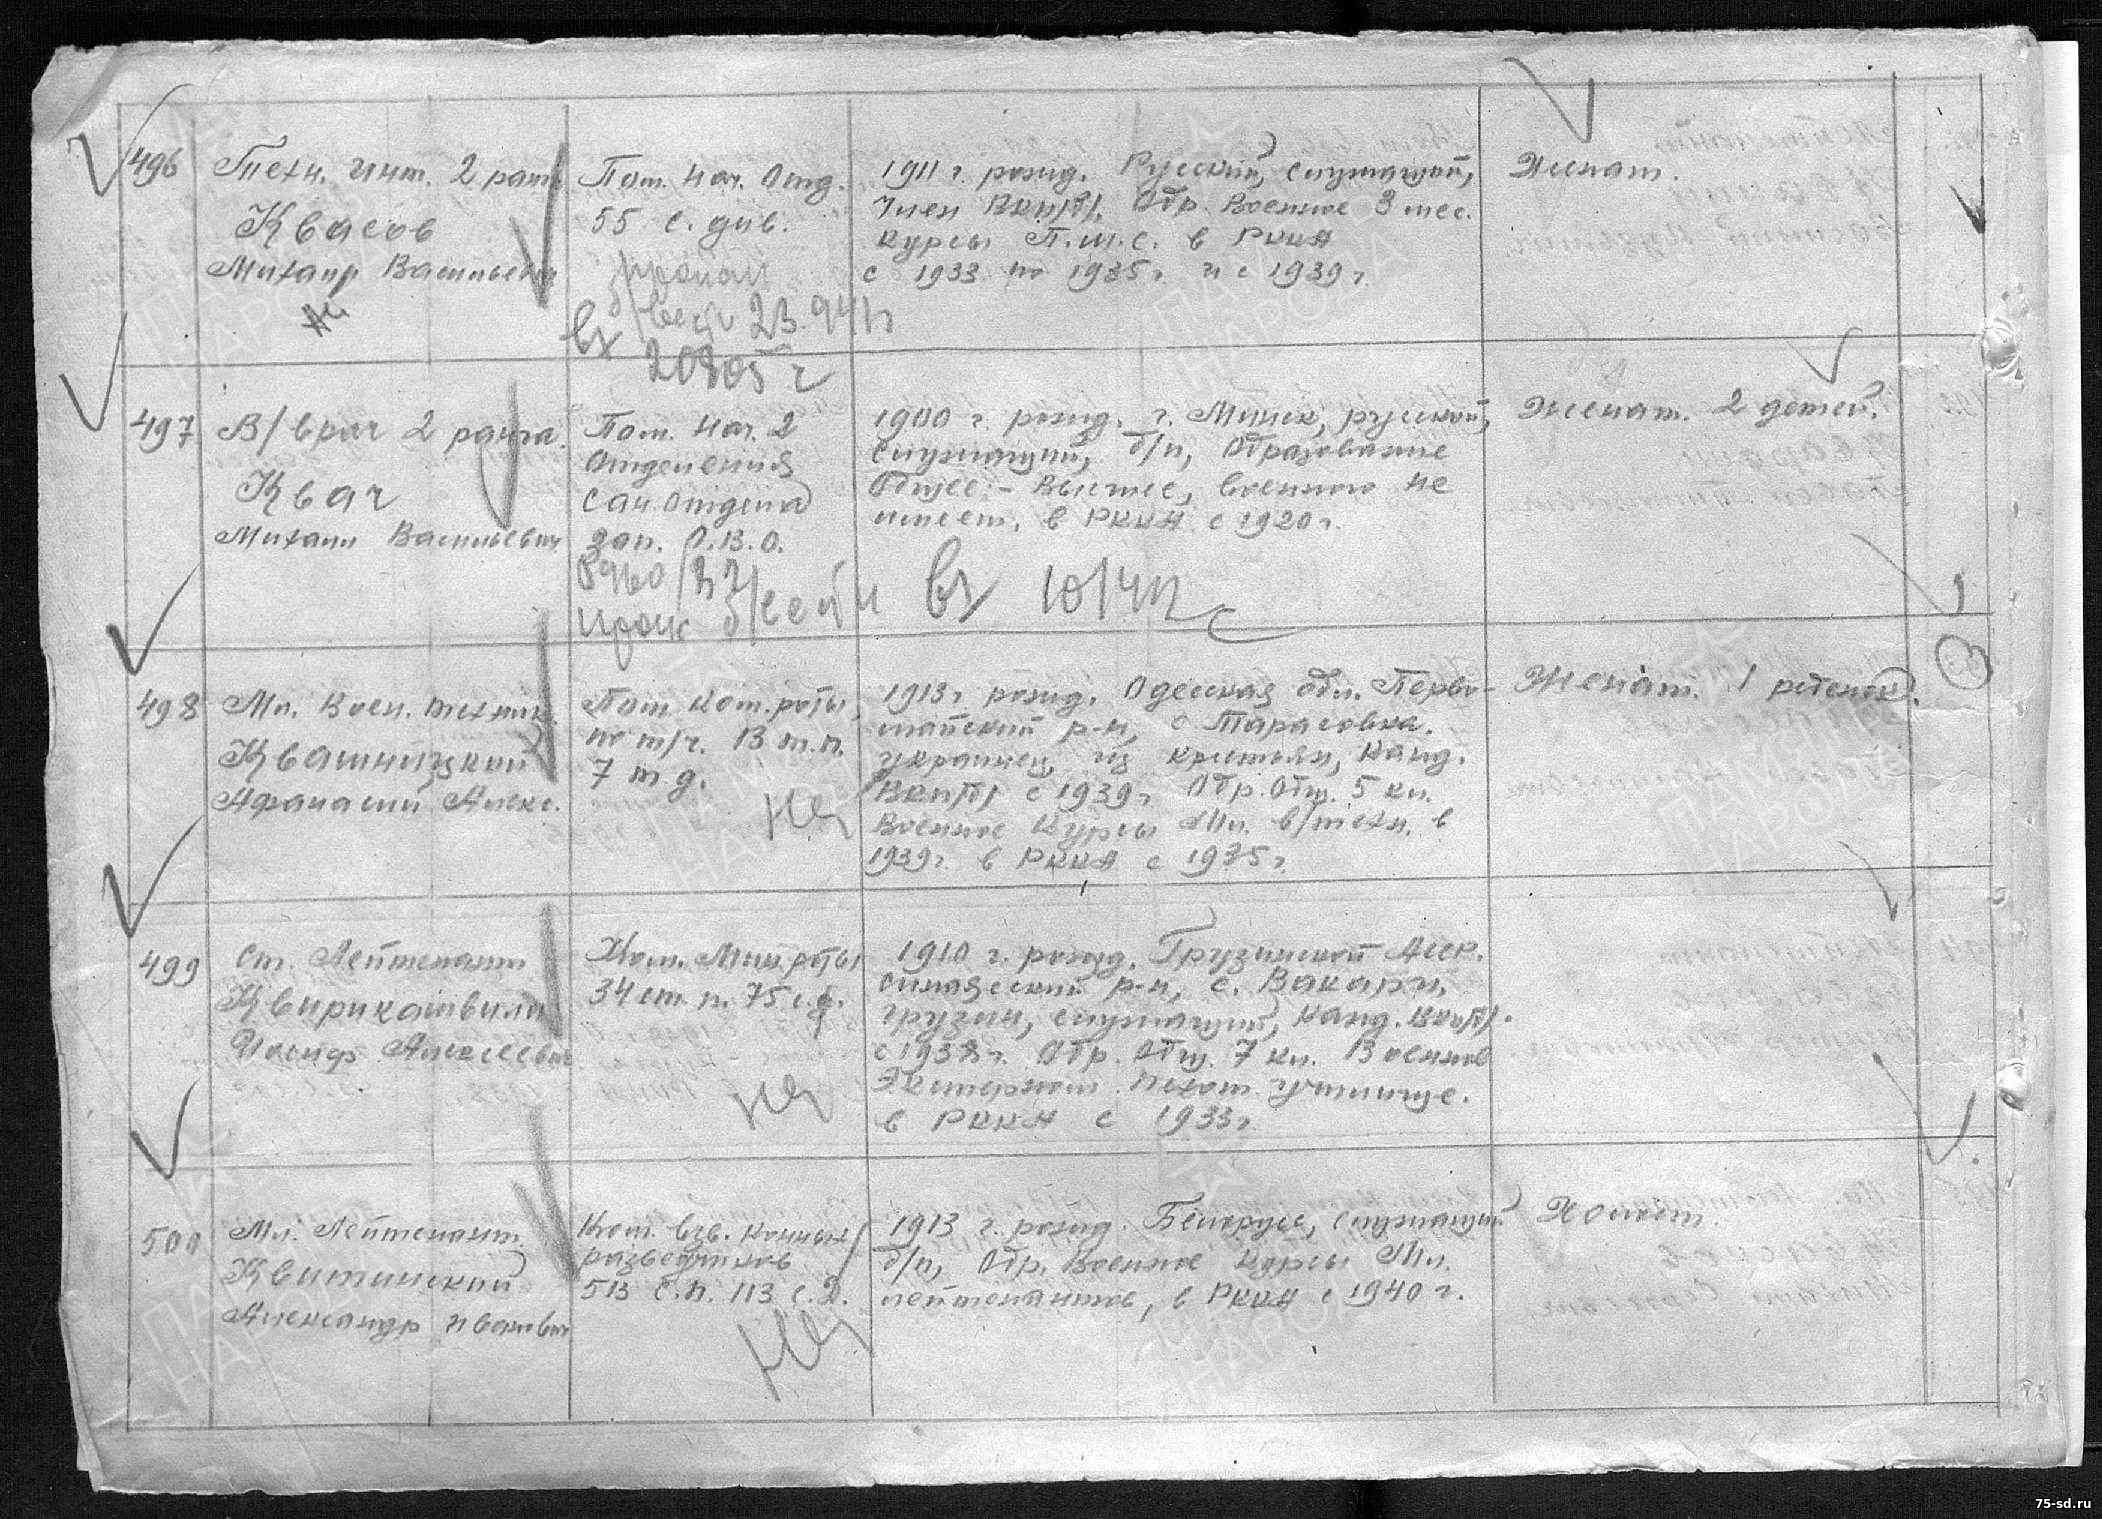 496
Техн. инт. 2 ранга
Квасов
Михаил Васильевич
Пом. нач. Отд.
55 с. див.
вх
20805
1911 г. рожд. Русский, служащий,
Член ВКП/б/. Обр. Военное 3 мес.
курсы П.М.С. в РККА
с 1933 по 1935 г. и с 1939 г.
Женат.
497
В/врач 2 ранга.
Квач
Михаил Васильевич
Пом. нач. 2
Отделения
Сан отдела
Зап. О.В.О.
вх
1900 г. рожд. г. Минск, русский,
служащий, б/п, Образование
Общее - Высшее, военного не
имеет, в РККА с 1920 г.
Женат. 2 детей.
498
Мл. Воен. техник.
Квашницкий
Афанасий Алекс.
Пом. Ком. роты
по т/ч. 13 т.п.
7 т д.
1913 г. рожд. Одесская обл. Перво-
майский р-н, с Тарасовка.
украинец, из крестьян, Канд.
ВКП/б/ с 1939 г. Обр. Общ. 5 кл.
Военное Курсы Мл. в/техн. в
1939 г. в РККА с 1935 г.
Женат. 1 ребенок.
499
Ст. Лейтенант
Квирикашвили
Иосиф Алексеевич
Ком. Мин роты
34 ст. п. 75 с.д.
1910 г. рожд. Грузинской АССР.
р-н, с. Вакари,
грузин, служащий, Канд. ВКП/б/.
с 1938 г. Обр. Общ. 7 кл. Военное
Экстерном пехот. училище.
в РККА с 1933 г.
500
Мл. Лейтенант.
Квитинский
Александр Иванович
Ком. взв. конных
разведчиков
513 с.п. 113 с.д.
1913 г. рожд. Белорусс, служащий
б/п, Обр. Военное Курсы Мл.
лейтенантов, в РККА с 1940 г.
Холост.
75-sd.ru